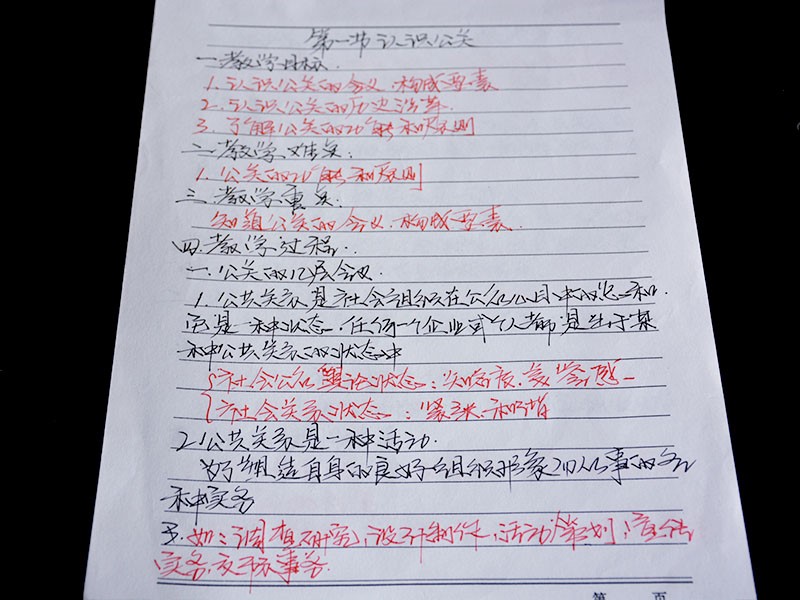 第一节 认识公关
一.教学目标.
1.认识公关的含义.构成要素
2.认识公关的历史沿革.
3.了解公关的功能和原则
二.教学难点:
1.公关的功能和原则
三.教学重点.
知道公关的含义.构成要素.
四.教学过程.
一.公关的几层含义.
1.公共关系是社会组织在公众心目中的总和.
它是一种状态.任何一个企业或个人都是生于某
种公共关系的状态中
社会公众舆论状态:知名度.美誉度
社会关系状态:紧张.和谐
2.公共关系是一种活动.
为了组织自身的良好组织形象而从事的各
种实务
3.如:调查研究,设计制作,活动策划,宣传
实务.反馈事务.
第 页